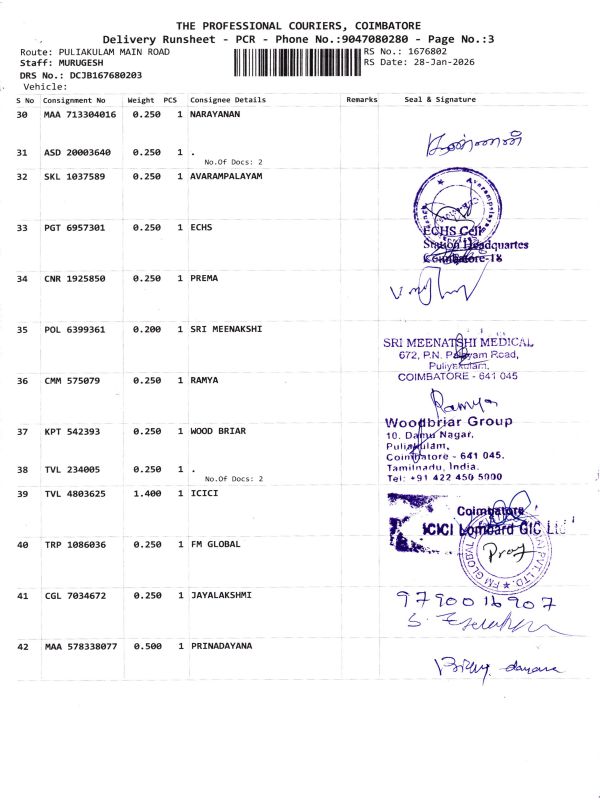 THE PROFESSIONAL COURIERS, COIMBATORE
Delivery Runsheet - PCR - Phone No.:9047080280 - Page No.:3
Route: PULIAKULAM MAIN ROAD RS No.: 1676802
Staff: MURUGESH RS Date: 28-Jan-2026
DRS No.: DCJB167680203
Vehicle:
S No Consignment No Weight PCS Consignee Details Remarks Seal & Signature
30 MAA 713304016 0.250 1 NARAYANAN
31 ASD 20003640 0.250 1 .
No.Of Docs: 2
32 SKL 1037589 0.250 1 AVARAMPALAYAM
33 PGT 6957301 0.250 1 ECHS
ECHS Cell
Station Headquartes
Coimbatore-18
34 CNR 1925850 0.250 1 PREMA
35 POL 6399361 0.200 1 SRI MEENAKSHI
SRI MEENATSHI MEDICAL
672, P.N. Palayam Road,
Puliyakulam,
COIMBATORE - 641 045
36 CMM 575079 0.250 1 RAMYA
Ramya
37 KPT 542393 0.250 1 WOOD BRIAR
Woodbriar Group
10. Damu Nagar,
Puliakulam,
Coimbatore - 641 045.
Tamilnadu, India.
Tel: +91 422 450 5000
38 TVL 234005 0.250 1 .
No.Of Docs: 2
39 TVL 4803625 1.400 1 ICICI
Coimbatore
ICICI Lombard GIC Ltd
40 TRP 1086036 0.250 1 FM GLOBAL
41 CGL 7034672 0.250 1 JAYALAKSHMI
9790016907
42 MAA 578338077 0.500 1 PRINADAYANA